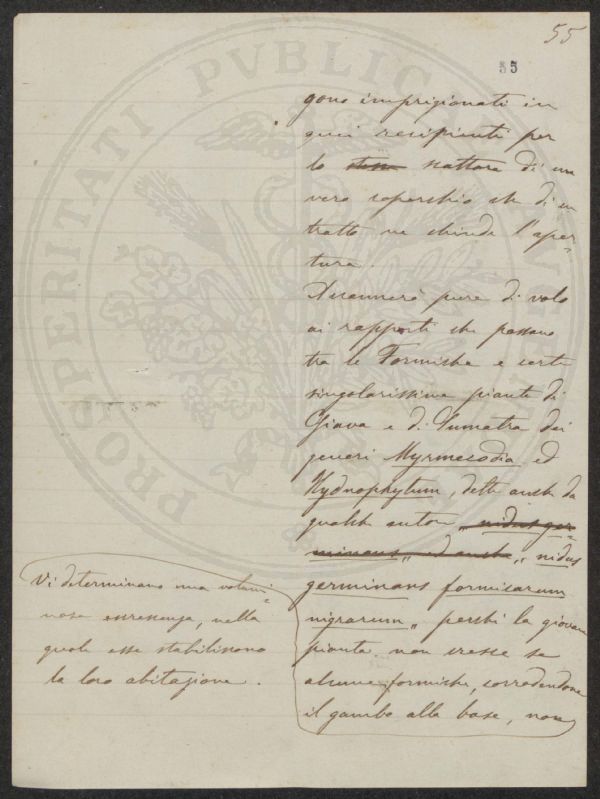 55
55
gono imprigionati in
quei recipienti per
lo stesso scattare di un
vero coperchio che di un
tratto ne chiude l'aper=
tura.
Accennerò pure di volo
ai rapporti che passano
tra le Formiche e certe
singolarissime piante di
Giava e di Sumatra dei
generi Myrmecodia ed
Hydnophytum, dette anche da
qualche autore „nidus ger=
minans„ ed anche „nidus
germinans formicarum
nigrarum„ perché la giovane
pianta non cresce se
alcune formiche, corrodendone
il gambo alla base, non
Vi determinano una volumi=
nosa escrescenza, nella
quale esse stabiliscono
la loro abitazione.
PROSPERITATI PVBLICAE AVGENDAE